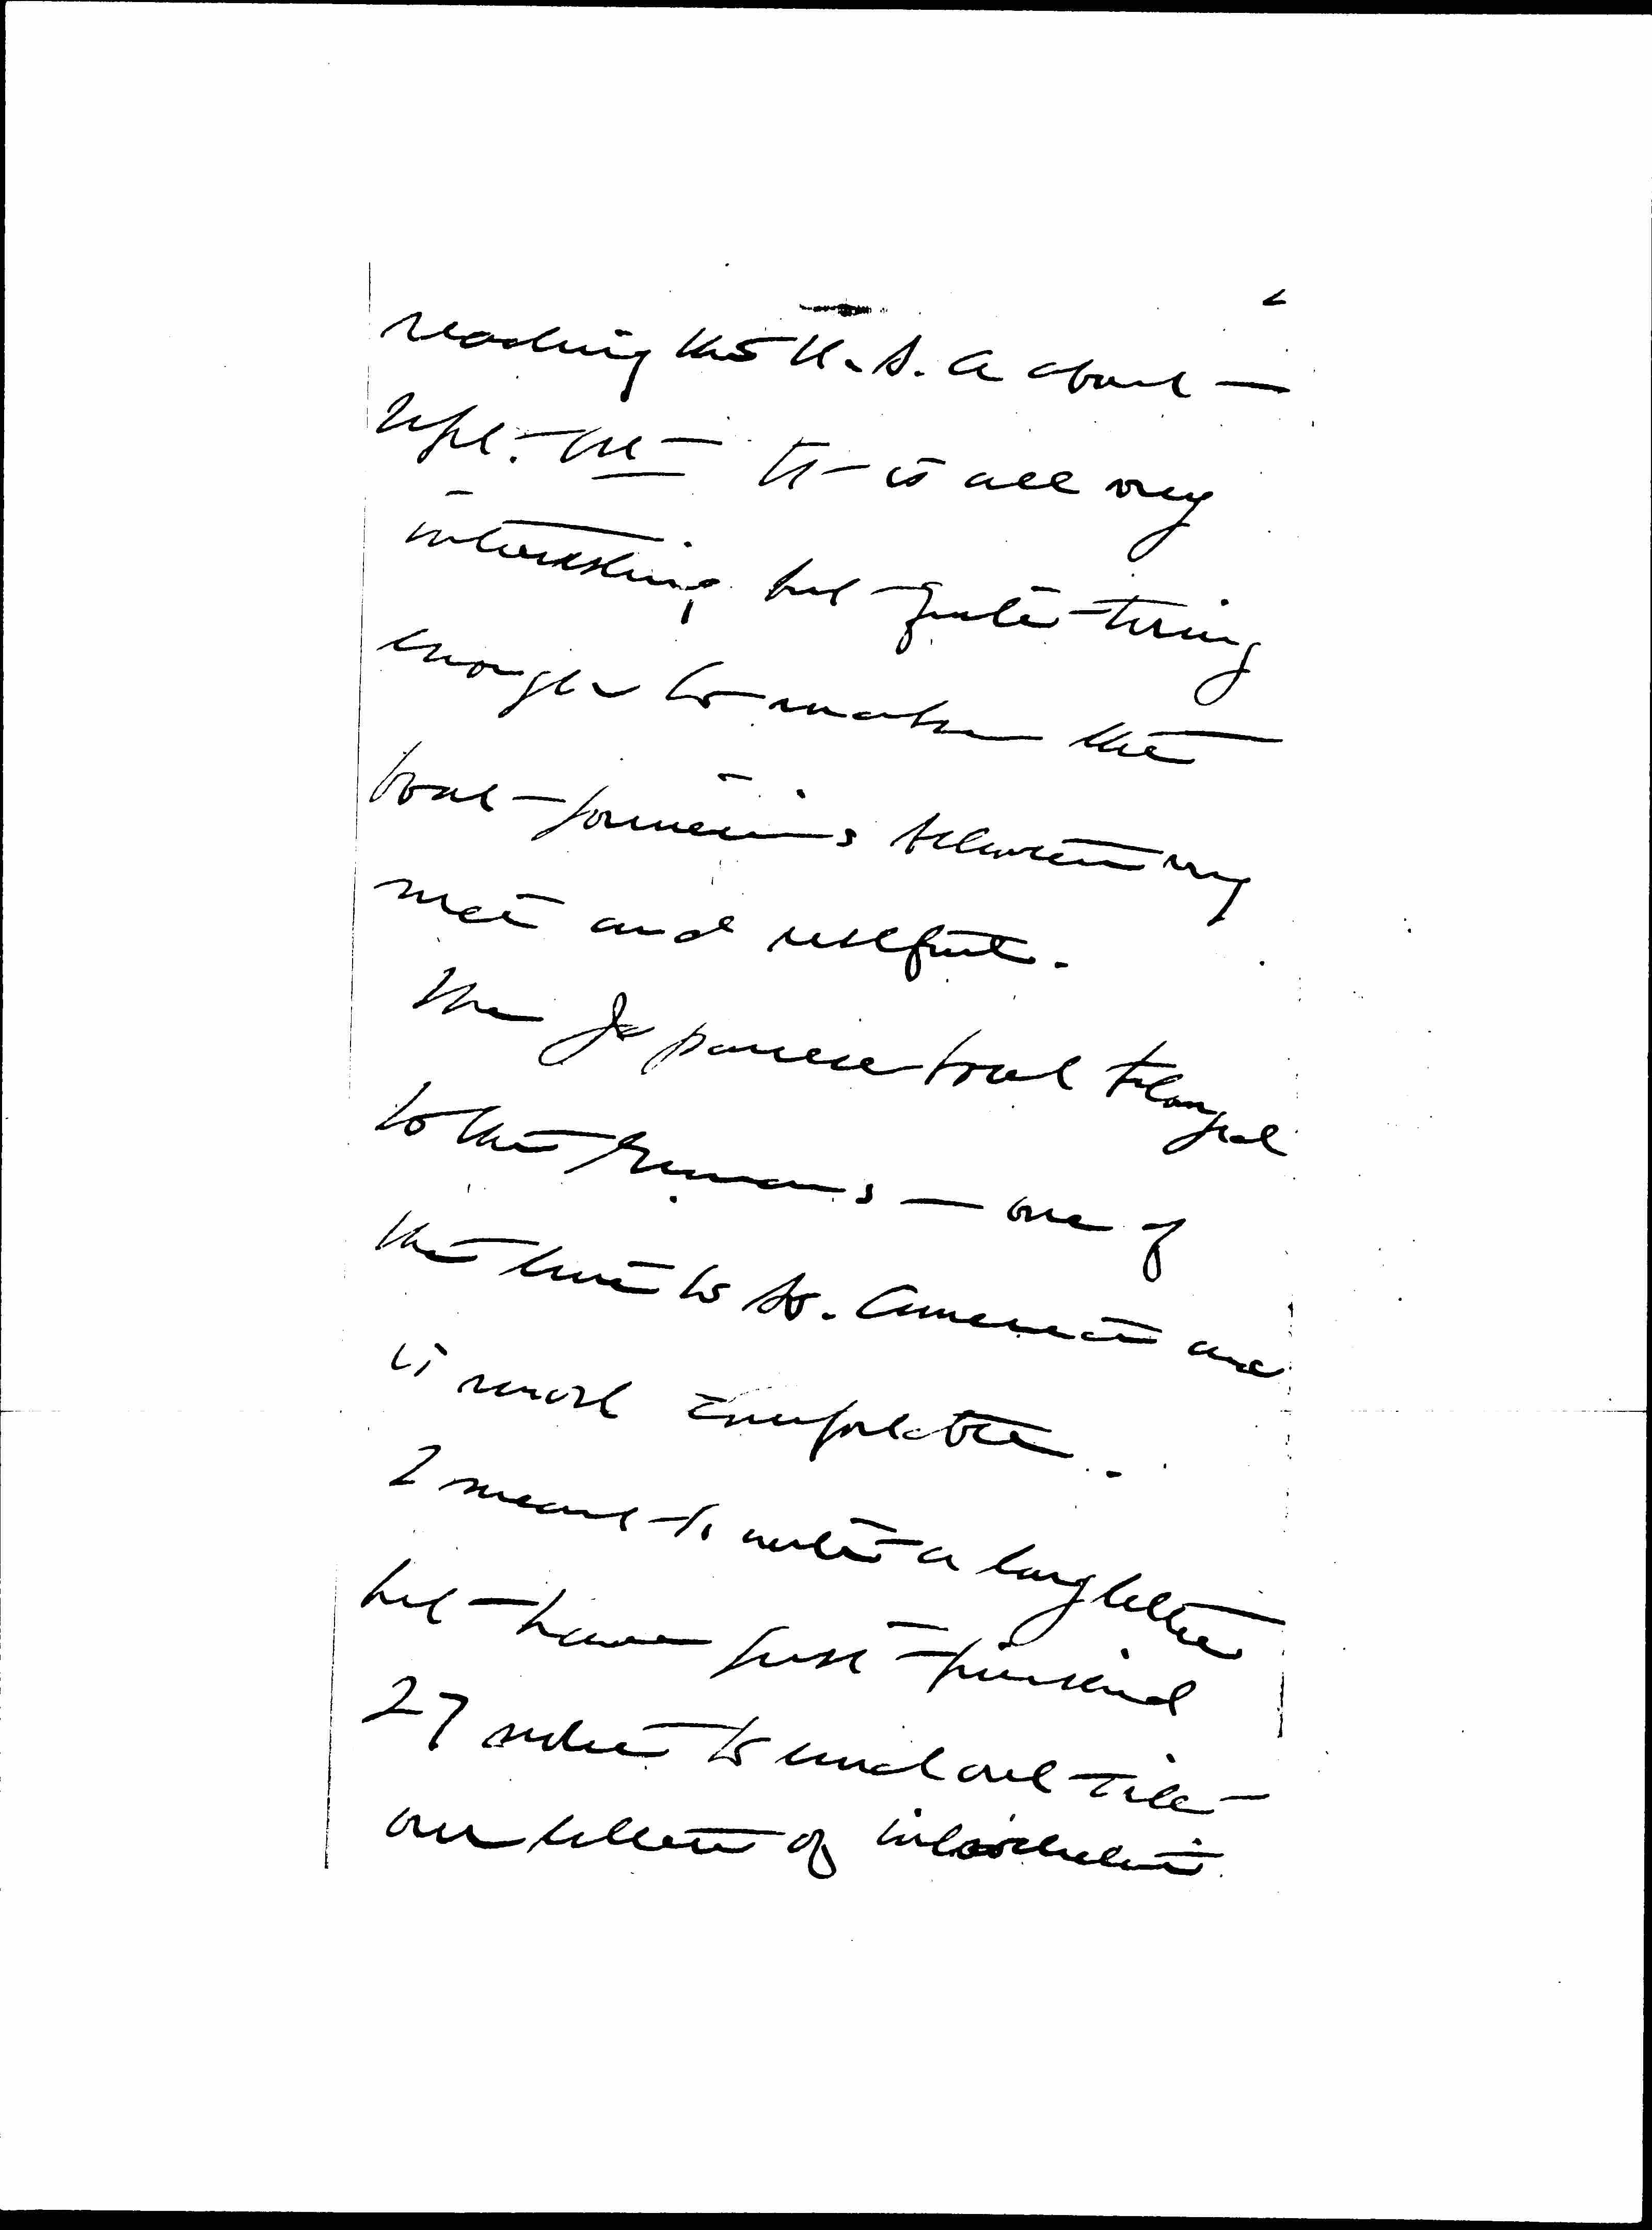 2
reaching the U.S.A about
Sept. 1st It is all very
interesting but quite tiring
enough to make the
boat journeys between very
nice and restful.
The Japanese boat belonged
to the Germans — one of
the line to So. America and
is most comfortable.
I meant to write a long letter
but have just finished
27 notes to send out with
our letters of introduction